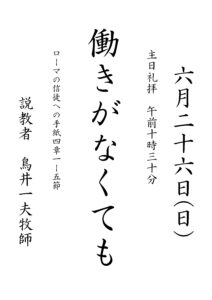 六月二十六日(日)
主日礼拝　午前十時三十分
働きがなくても
ローマの信徒への手紙四章一ー五節
説教者　鳥井一夫牧師